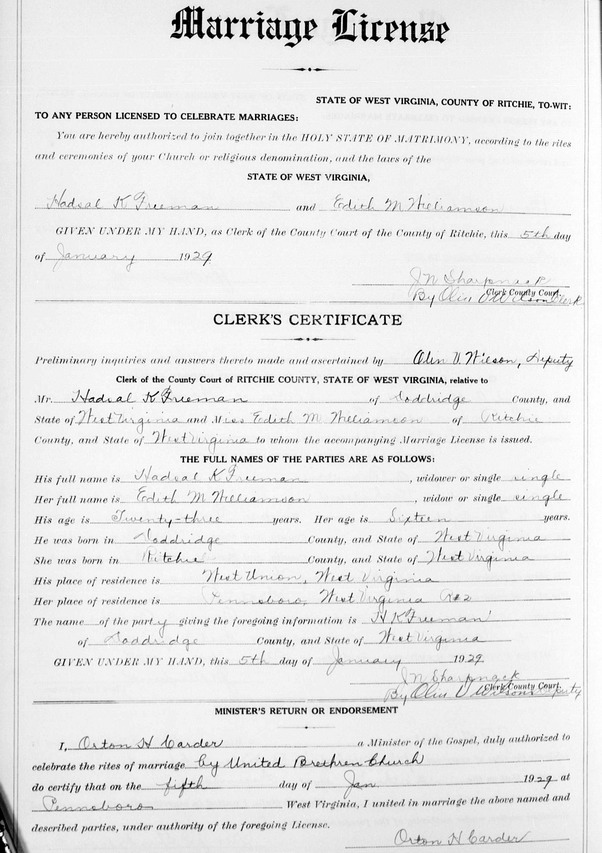 Marriage License
STATE OF WEST VIRGINIA, COUNTY OF RITCHIE, TO-WIT:
TO ANY PERSON LICENSED TO CELEBRATE MARRIAGES:
You are hereby authorized to join together in the HOLY STATE OF MATRIMONY, according to the rites
and ceremonies of your Church or religious denomination, and the laws of the
STATE OF WEST VIRGINIA,
Hadsal K Freeman and Edith M Williamson
GIVEN UNDER MY HAND, as Clerk of the County Court of the County of Ritchie, this 5th day
of January 1929
J N Sharpnack
Clerk County Court.
By Olin V Wilson Clerk
CLERK'S CERTIFICATE
Preliminary inquiries and answers thereto made and ascertained by Olin V. Wilson, Deputy
Clerk of the County Court of RITCHIE COUNTY, STATE OF WEST VIRGINIA, relative to
Mr. Hadsal K Freeman of Doddridge County, and
State of West Virginia and Miss Edith M Williamson of Ritchie
County, and State of West Virginia to whom the accompanying Marriage License is issued.
THE FULL NAMES OF THE PARTIES ARE AS FOLLOWS:
His full name is Hadsal K Freeman, widower or single single
Her full name is Edith M Williamson, widow or single single
His age is Twenty-three years. Her age is Sixteen years.
He was born in Doddridge County, and State of West Virginia
She was born in Ritchie County, and State of West Virginia
His place of residence is West Union, West Virginia
Her place of residence is Pennsboro, West Virginia R#2
The name of the party giving the foregoing information is H K Freeman
of Doddridge County, and State of West Virginia
GIVEN UNDER MY HAND, this 5th day of January 1929
J N Sharpnack
Clerk County Court.
By Olin V Wilson Deputy
MINISTER'S RETURN OR ENDORSEMENT
I, Orton H Carder a Minister of the Gospel, duly authorized to
celebrate the rites of marriage by United Brethren Church
do certify that on the fifth day of Jan. 1929 at
Pennsboro West Virginia, I united in marriage the above named and
described parties, under authority of the foregoing License.
Orton H Carder